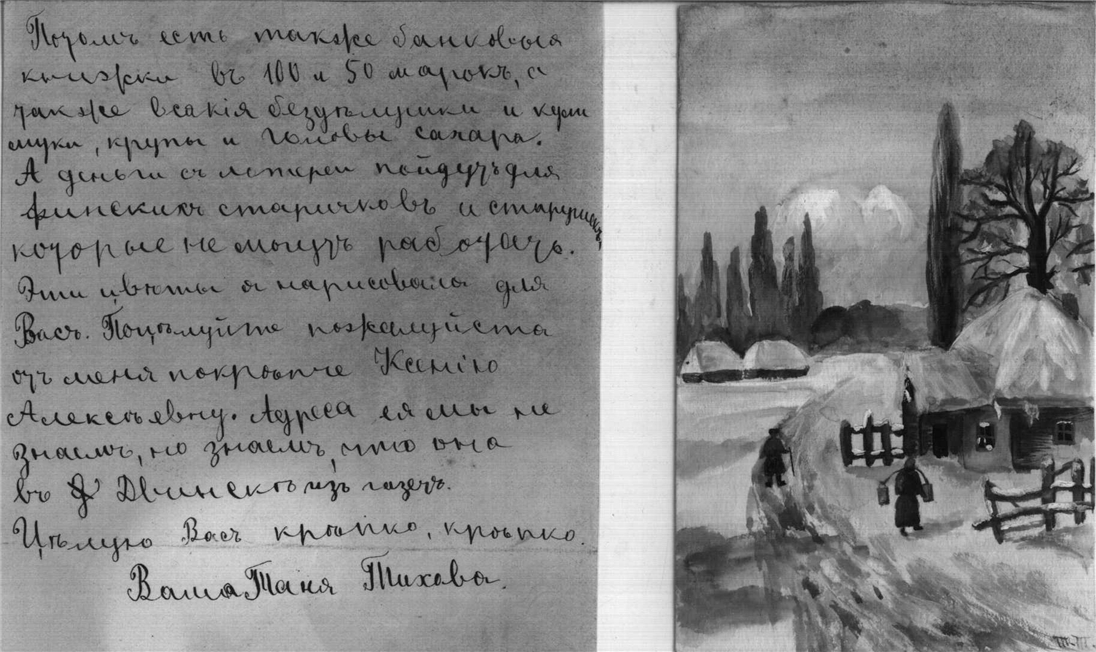 Потомъ есть также банковыя
книжки въ 100 и 50 марокъ, а
также всякія бездѣлушки и кули
муки, крупы и головы сахара.
А деньги съ лотереи пойдутъ для
финскихъ старичковъ и старушекъ,
которые не могутъ работать.
Эти цвѣты я нарисовала для
Васъ. Поцѣлуйте пожалуйста
отъ меня покрѣпче Ксенію
Алексѣевну. Адреса ея мы не
знаемъ, но знаемъ, что она
въ Двинскѣ изъ газетъ.
Цѣлую Васъ крѣпко, крѣпко.
Ваша Таня Тихова.
Т.Т.